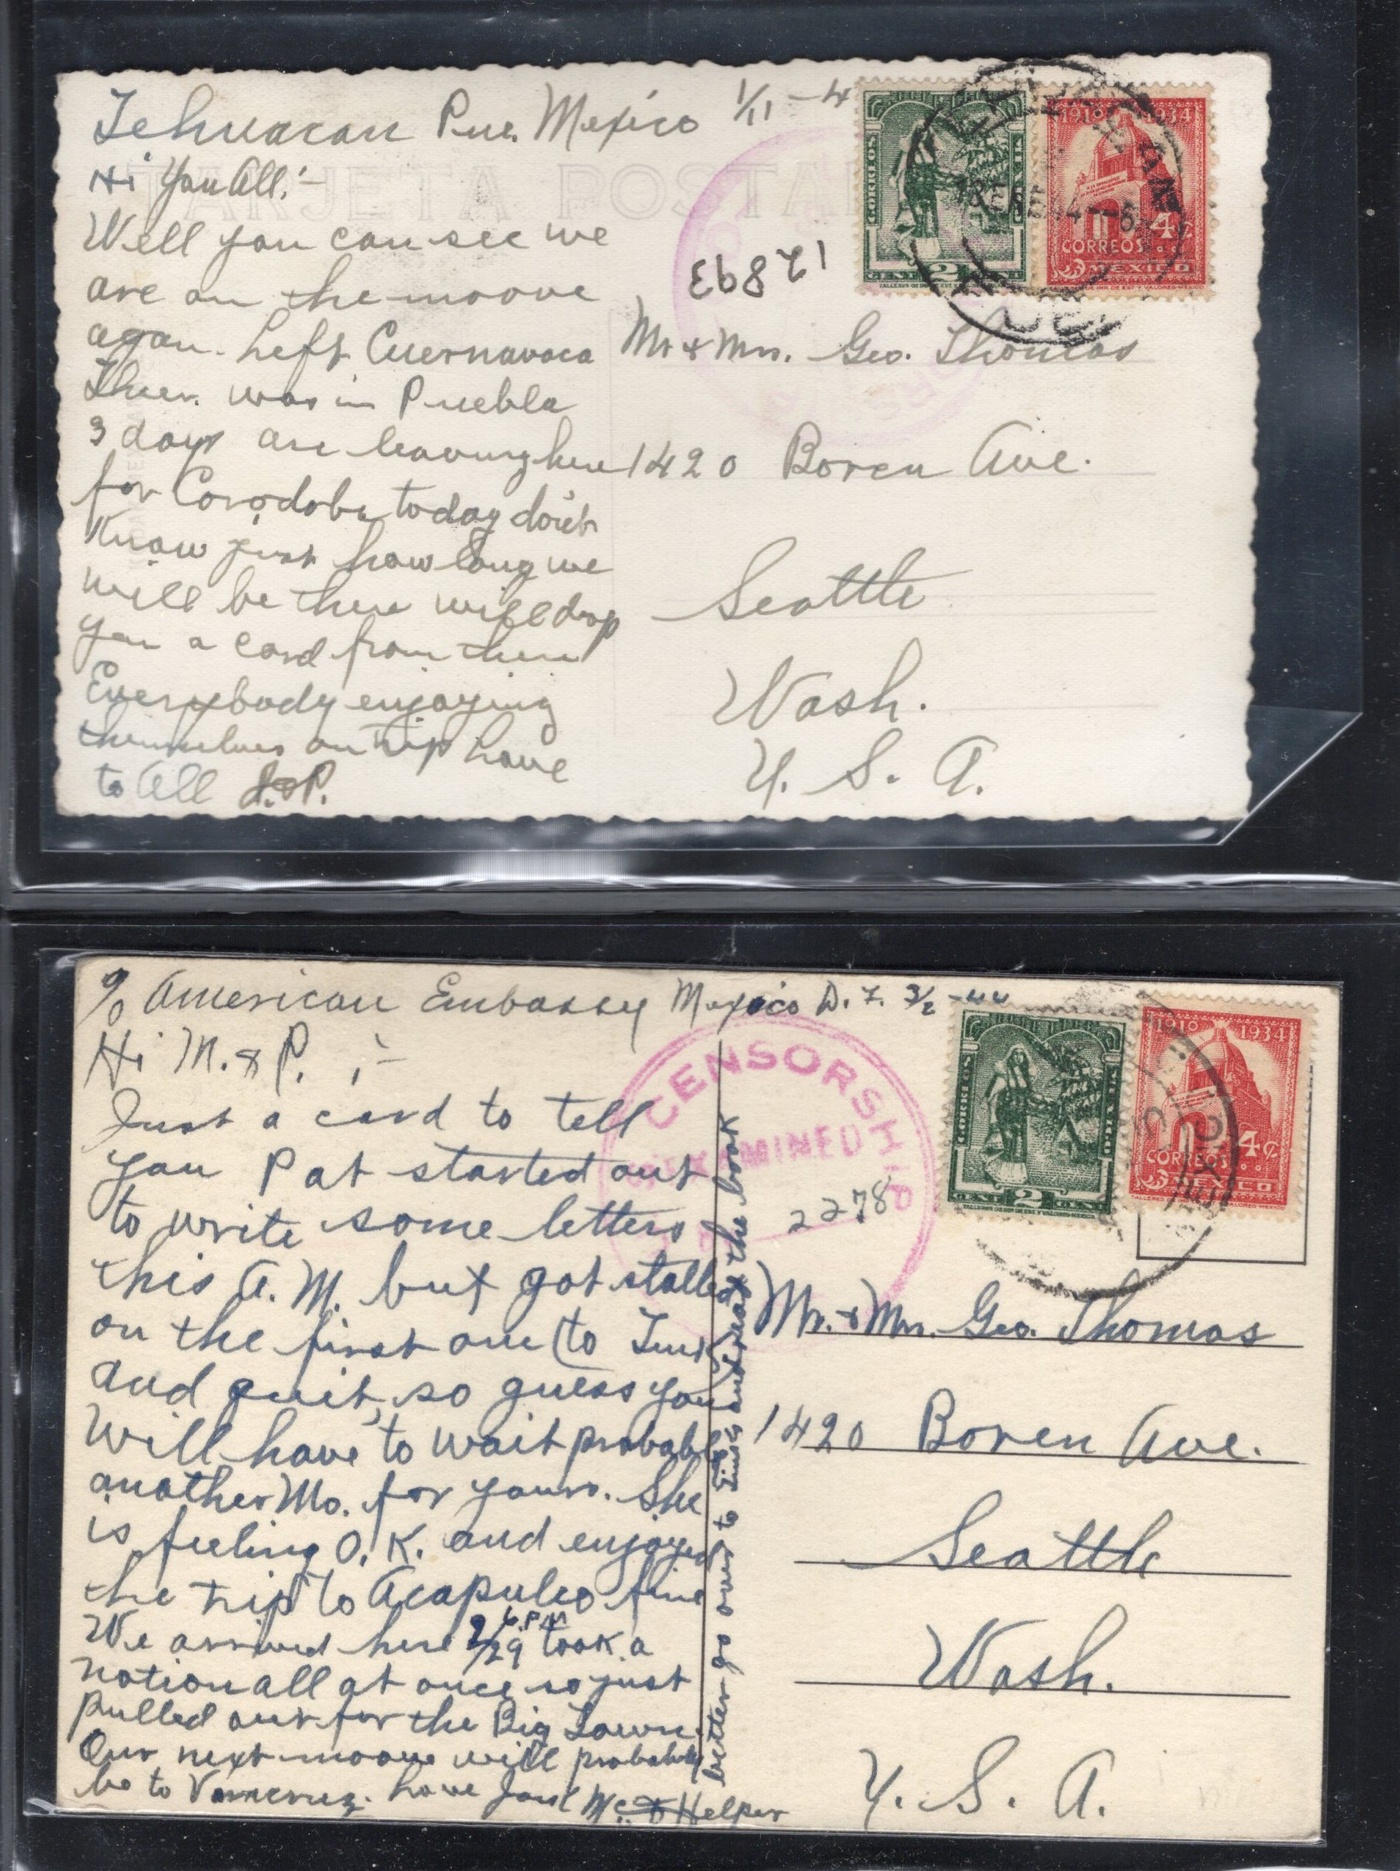 Tehuacan Pue. Mexico 1/11 - 4
TARJETA POSTAL
Hi You All:-
Well you can see we
are on the moove
agan. Left Cuernavaca
Thur. was in Puebla
3 days are leaving here
for Corodoba today don't
Know just how long we
will be there will drop
you a card from there
Everybody enjoying
themselves on trip love
to All J.&P.
12893
CORREOS
CENT 2 CENT
1910 1934
4¢
CORREOS
MEXICO
Mr & Mrs. Geo. Thomas
1420 Boren Ave.
Seattle
Wash.
U. S. A.
% American Embassy Mexico D. F. 3/2 - 44
Hi M. & P. :-
Just a card to tell
you Pat started out
to write some letters
this A. M. but got stalled
on the first one (to Tink)
and quit, so guess you
will have to wait probably
another Mo. for yours. She
is feeling O. K. and enjoyed
the trip to Acapulco fine
We arrived here 2/29 6. P.M took a
notion all at once so just
pulled out for the Big Town.
Our next moove will probably
be to Veracruz. love Jack Mc. & Helper
better go over to Tink's and read the book
CENSORSHIP
EXAMINED
2278
CORREOS
CENT 2 CENT
1910 1934
4¢
CORREOS
MEXICO
Mr. & Mrs. Geo. Thomas
1420 Boren Ave.
Seattle
Wash.
U. S. A.